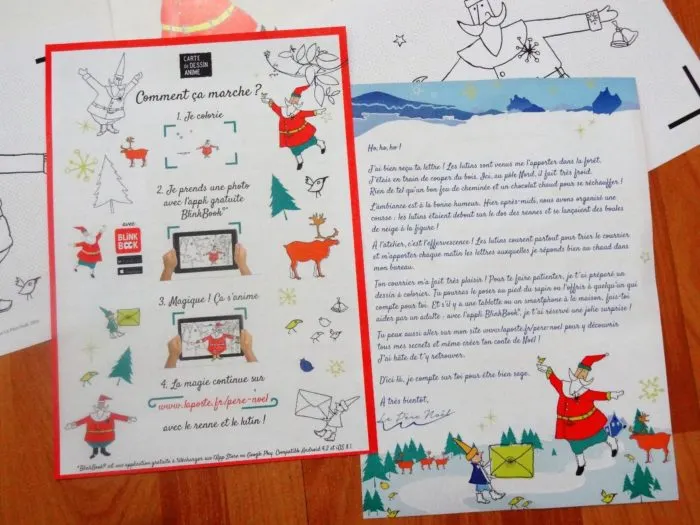 CARTE
DE DESSIN
ANIMÉ
Comment ça marche ?
1. Je colorie
2. Je prends une photo
avec l'appli gratuite
BlinkBook*
avec
BLINK
BOOK
3. Magique ! Ça s'anime
4. La magie continue sur
www.laposte.fr/pere-noel
avec le renne et le lutin !
*BlinkBook® est une application gratuite à télécharger sur l'App Store ou Google Play. Compatible Android 4.2 et iOS 8.1.
Ho, ho, ho !
J'ai bien reçu ta lettre ! Les lutins sont venus me l'apporter dans la forêt.
J'étais en train de couper du bois. Ici, au pôle Nord, il fait très froid.
Rien de tel qu'un bon feu de cheminée et un chocolat chaud pour se réchauffer !
L'ambiance est à la bonne humeur. Hier après-midi, nous avons organisé une
course : les lutins étaient debout sur le dos des rennes et se lançaient des boules
de neige à la figure !
À l'atelier, c'est l'effervescence ! Les lutins courent partout pour trier le courrier
et m'apporter chaque matin les lettres auxquelles je réponds bien au chaud dans
mon bureau.
Ton courrier m'a fait très plaisir ! Pour te faire patienter, je t'ai préparé un
dessin à colorier. Tu pourras le poser au pied du sapin ou l'offrir à quelqu'un qui
compte pour toi. Et s'il y a une tablette ou un smartphone à la maison, fais-toi
aider par un adulte : avec l'appli BlinkBook®, je t'ai réservé une jolie surprise !
Tu peux aussi aller sur mon site www.laposte.fr/pere-noel pour y découvrir
tous mes secrets et même créer ton conte de Noël !
J'ai hâte de t'y retrouver.
D'ici là, je compte sur toi pour être bien sage.
À très bientôt,
Le Père Noël